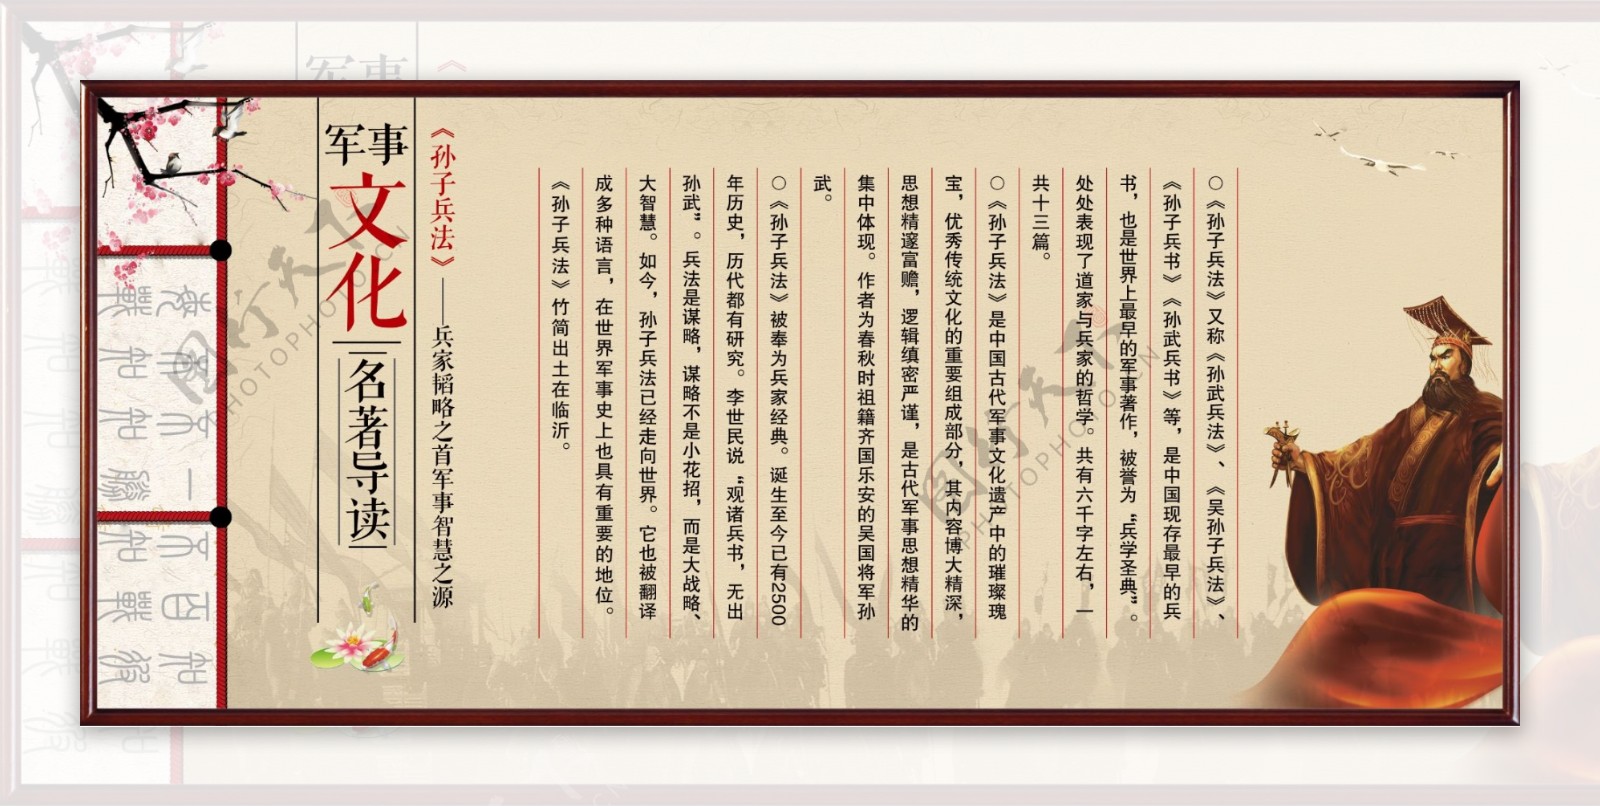 军事
文化
名著导读
《孙子兵法》——兵家韬略之首军事智慧之源
○《孙子兵法》又称《孙武兵法》、《吴孙子兵法》、
《孙子兵书》《孙武兵书》等，是中国现存最早的兵
书，也是世界上最早的军事著作，被誉为“兵学圣典”。
处处表现了道家与兵家的哲学。共有六千字左右，一
共十三篇。
○《孙子兵法》是中国古代军事文化遗产中的璀璨瑰
宝，优秀传统文化的重要组成部分，其内容博大精深，
思想精邃富赡，逻辑缜密严谨，是古代军事思想精华的
集中体现。作者为春秋时祖籍齐国乐安的吴国将军孙
武。
○《孙子兵法》被奉为兵家经典。诞生至今已有2500
年历史，历代都有研究。李世民说“观诸兵书，无出
孙武”。兵法是谋略，谋略不是小花招，而是大战略、
大智慧。如今，孙子兵法已经走向世界。它也被翻译
成多种语言，在世界军事史上也具有重要的地位。
《孙子兵法》竹简出土在临沂。
图行天下
PHOTOPHOTO.CN
图行天下
PHOTOPHOTO.CN